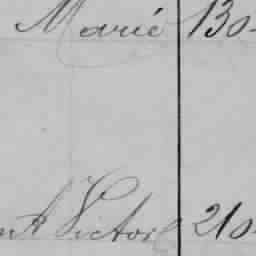 Marié 130
nt Victor 210